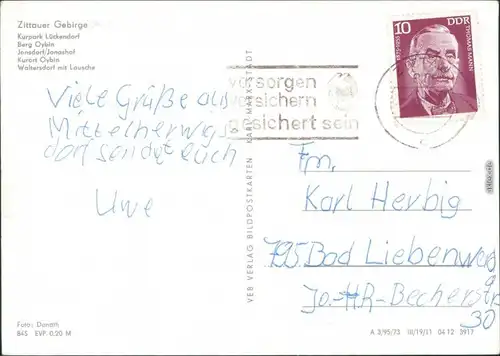 Zittauer Gebirge
Kurpark Lückendorf
Berg Oybin
Jonsdorf/Jonashof
Kurort Oybin
Waltersdorf mit Lausche
Viele Grüße aus
Mittelherwigs
dorf sendet euch
Uwe
Foto: Donath
845 EVP 0,20 M
VEB VERLAG BILDPOSTKARTEN KARL-MARX-STADT
versorgen
versichern
gesichert sein
10 DDR
THOMAS MANN
1875-1955
Fm.
Karl Herbig
795 Bad Liebenwerda
Jo.-HR-Becherstr
30
A 3/95/73 III/19/11 04 12 3917